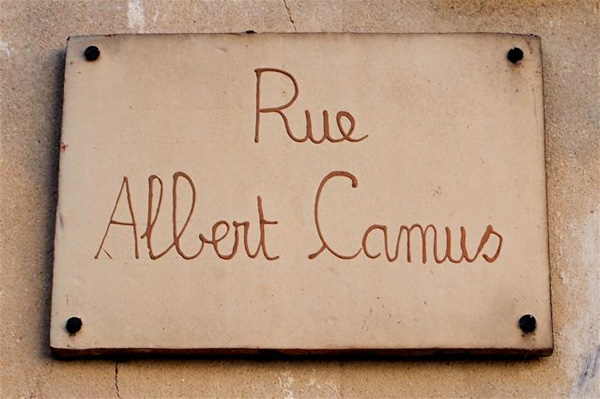 Rue
Albert Camus